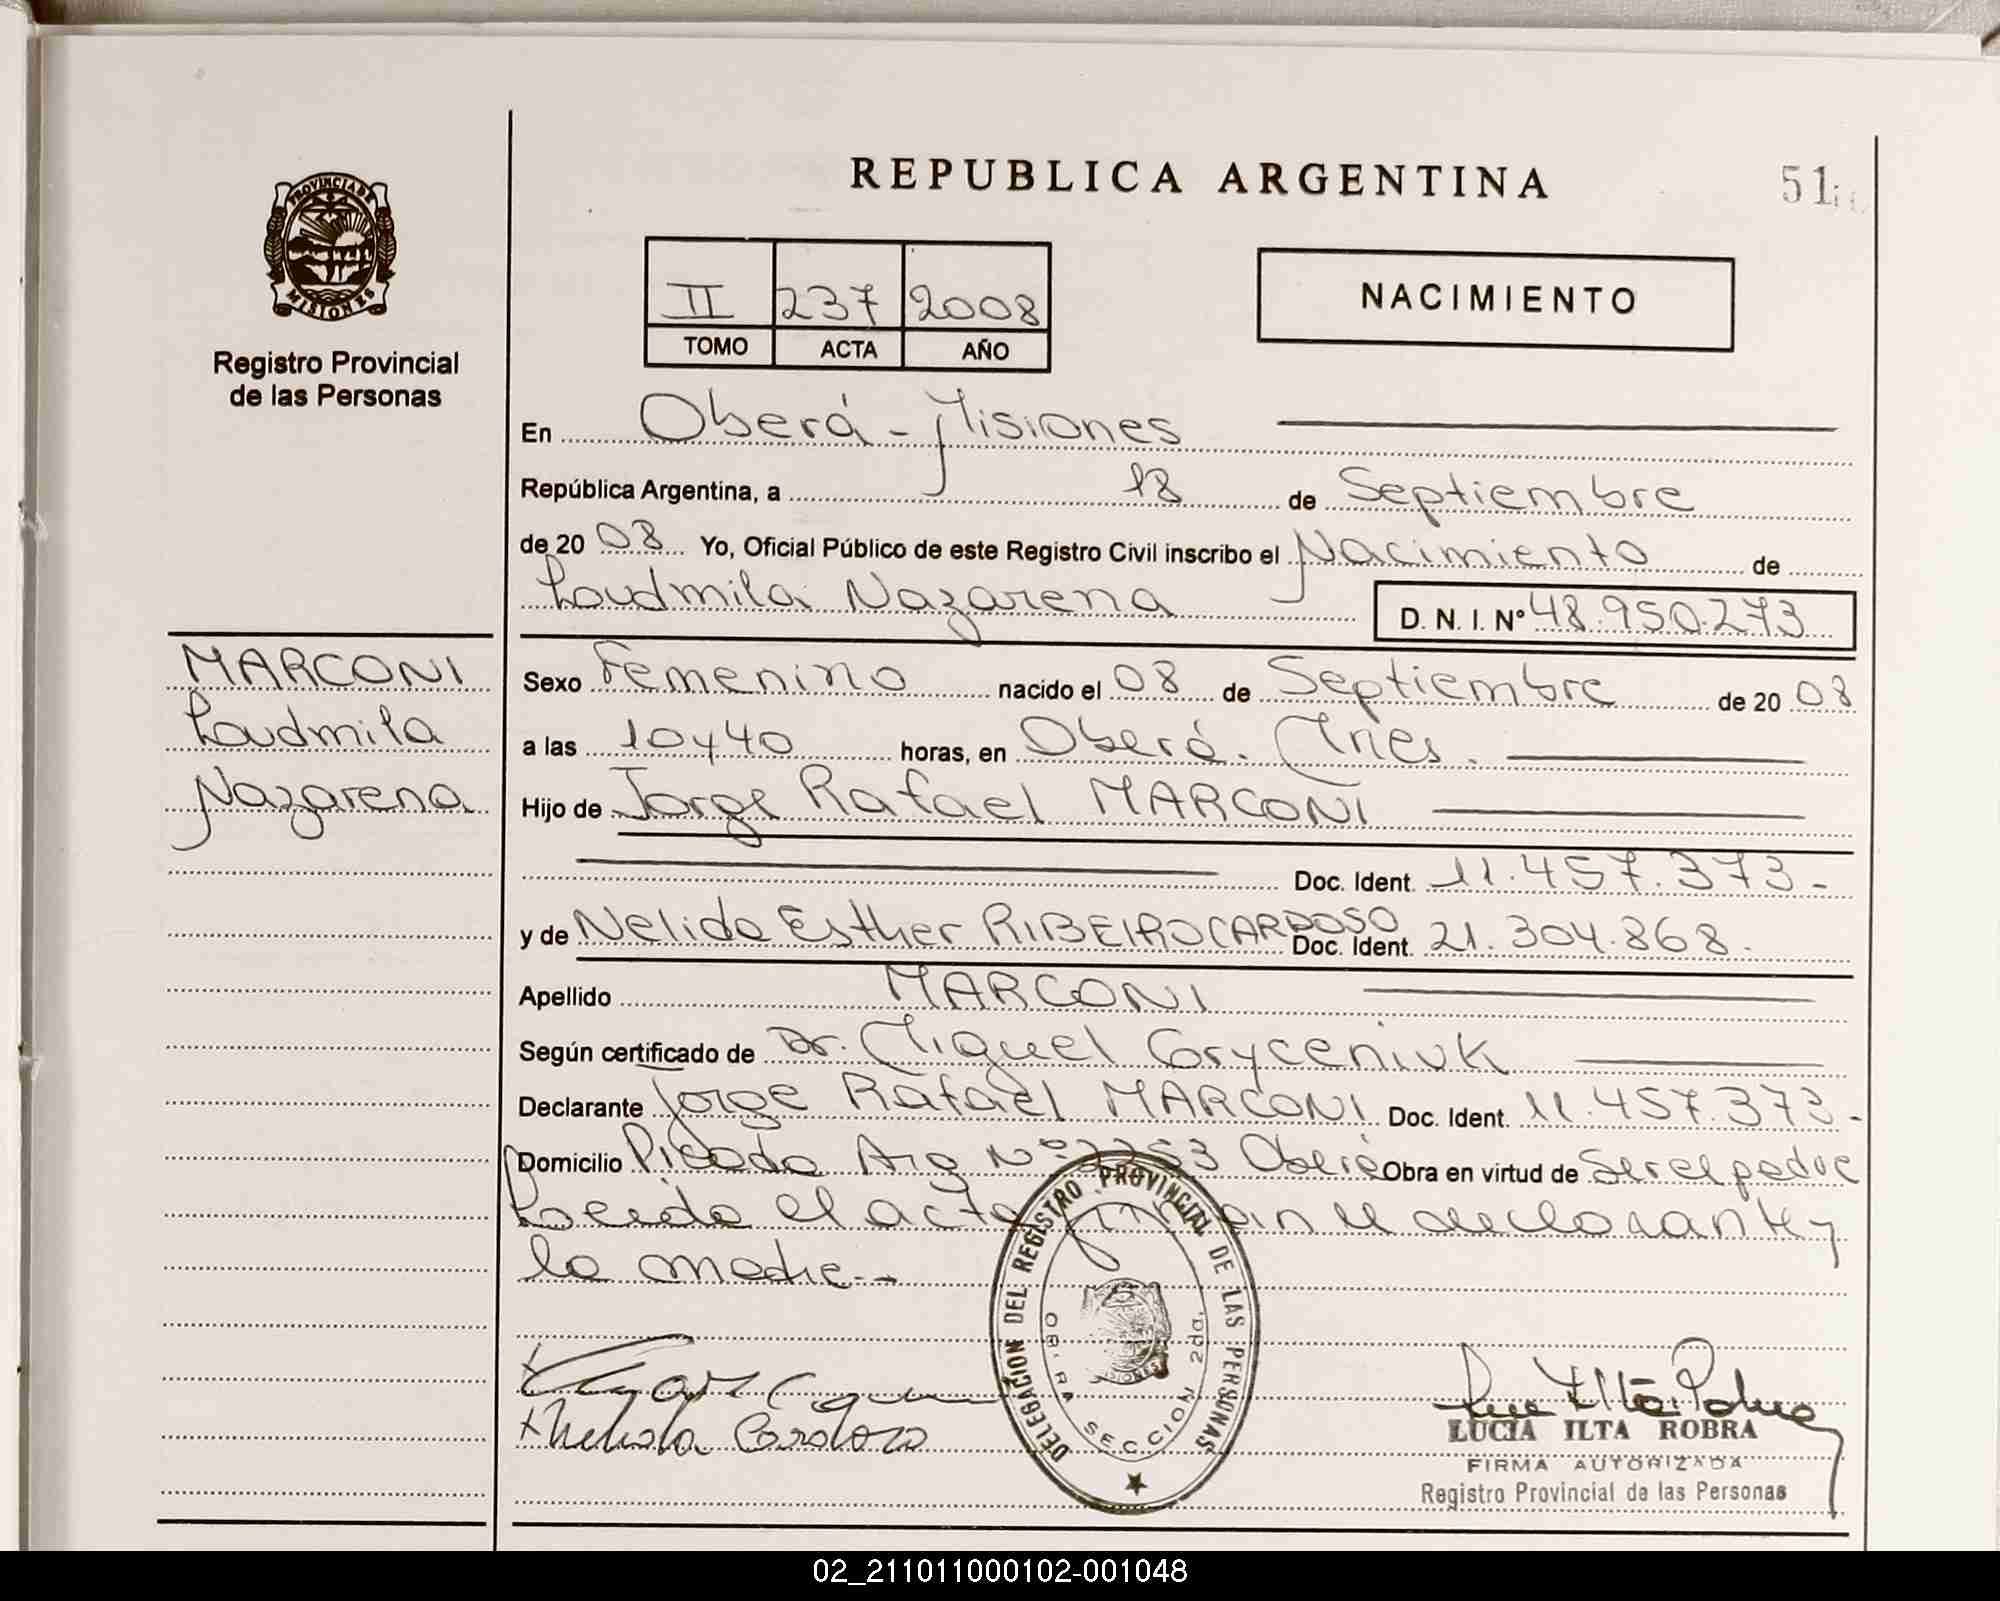 REPUBLICA ARGENTINA
51
PROVINCIA DE
MISIONES
Registro Provincial
de las Personas
II 237 2008
TOMO ACTA AÑO
NACIMIENTO
En Oberá - Misiones
República Argentina, a 18 de Septiembre
de 20 08 Yo, Oficial Público de este Registro Civil inscribo el Nacimiento de
Loudmila Nazarena D. N. I. Nº 48.950.273
MARCONI
Loudmila
Nazarena
Sexo Femenino nacido el 08 de Septiembre de 20 08
a las 10 y 40 horas, en Oberá. Mnes.
Hijo de Jorge Rafael MARCONI
Doc. Ident. 11.457.373-
y de Nelida Esther RIBEIRO CARDOSO Doc. Ident. 21.304.868.
Apellido MARCONI
Según certificado de Dr. Miguel Goryceniuk
Declarante Jorge Rafael MARCONI Doc. Ident. 11.457.373-
Domicilio Picada Arg Nº 3253 Oberá Obra en virtud de Ser el padre
Loeida el acta firman el declarante y
la madre.-
DELEGACION DEL REGISTRO PROVINCIAL DE LAS PERSONAS
OBERA SECCION 2da.
Cardozo
LUCIA ILTA ROBRA
FIRMA AUTORIZADA
Registro Provincial de las Personas
02_211011000102-001048